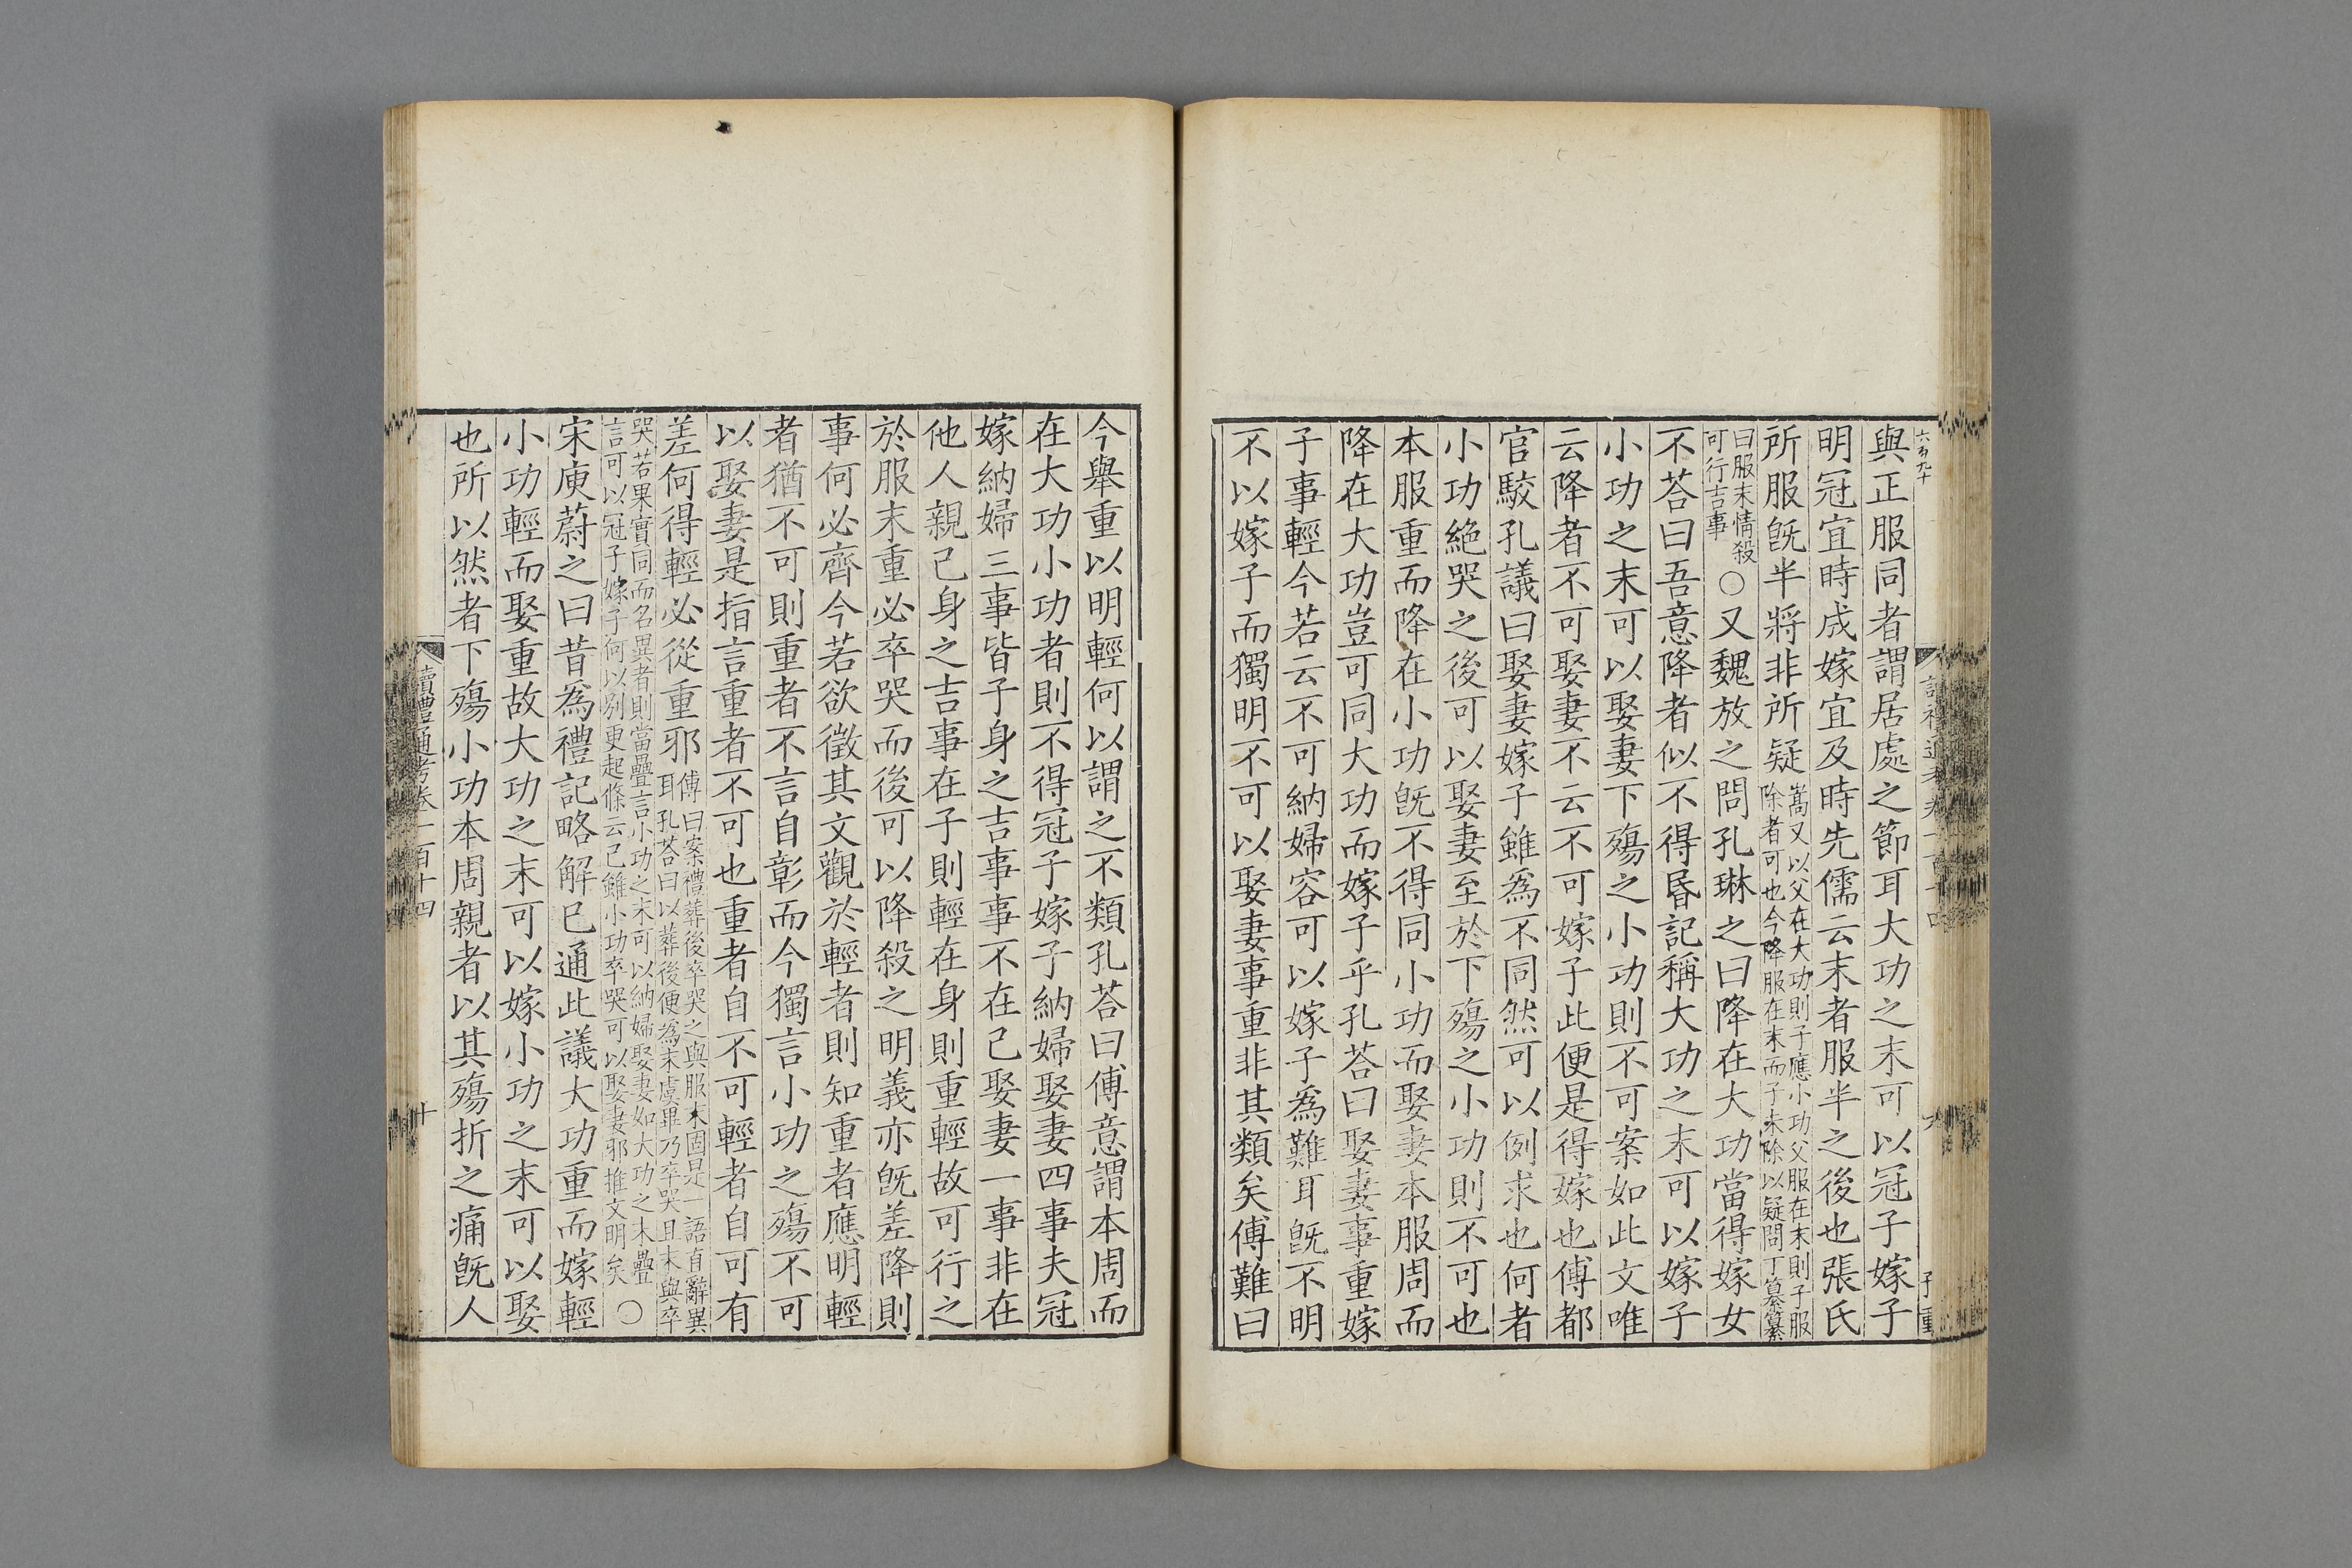 與正服同者謂居處之節耳大功之末可以冠子嫁子
明冠宜時成嫁宜及時先儒云末者服半之後也張氏
所服旣半將非所疑嵩又以父在大功則子應小功父服在末則子服
除者可也今降服在末而子未除以疑問丁纂纂
曰服末情殺
可行吉事〇又魏放之問孔琳之曰降在大功當得嫁女
不荅曰吾意降者似不得昬記稱大功之末可以嫁子
小功之末可以娶妻下殤之小功則不可案如此文唯
云降者不可娶妻不云不可嫁子此便是得嫁也傅都
官駮孔議曰娶妻嫁子雖爲不同然可以例求也何者
小功絶哭之後可以娶妻至於下殤之小功則不可也
本服重而降在小功旣不得同小功而娶妻本服周而
降在大功豈可同大功而嫁子乎孔荅曰娶妻事重嫁
子事輕今若云不可納婦容可以嫁子爲難耳旣不明
不以嫁子而獨明不可以娶妻事重非其類矣傅難曰
今舉重以明輕何以謂之不類孔荅曰傅意謂本周而
在大功小功者則不得冠子嫁子納婦娶妻四事夫冠
嫁納婦三事皆子身之吉事事不在己娶妻一事非在
他人親己身之吉事在子則輕在身則重輕故可行之
於服末重必卒哭而後可以降殺之明義亦旣差降則
事何必齊今若欲徵其文觀於輕者則知重者應明輕
者猶不可則重者不言自彰而今獨言小功之殤不可
以娶妻是指言重者不可也重者自不可輕者自可有
差何得輕必從重邪傅曰案禮葬後卒哭之與服末固是一語自辭異
耳孔荅曰以葬後便爲末虞畢乃卒哭且末與卒
哭若果實同而名異者則當疊言小功之末可以納婦娶妻如大功之末疊
言可以冠子嫁子何以別更起條云己雖小功卒哭可以娶妻邪推文明矣〇
宋庾蔚之曰昔爲禮記略解已通此議大功重而嫁輕
小功輕而娶重故大功之末可以嫁小功之末可以娶
也所以然者下殤小功本周親者以其殤折之痛旣人
讀禮通考卷一百十四
十